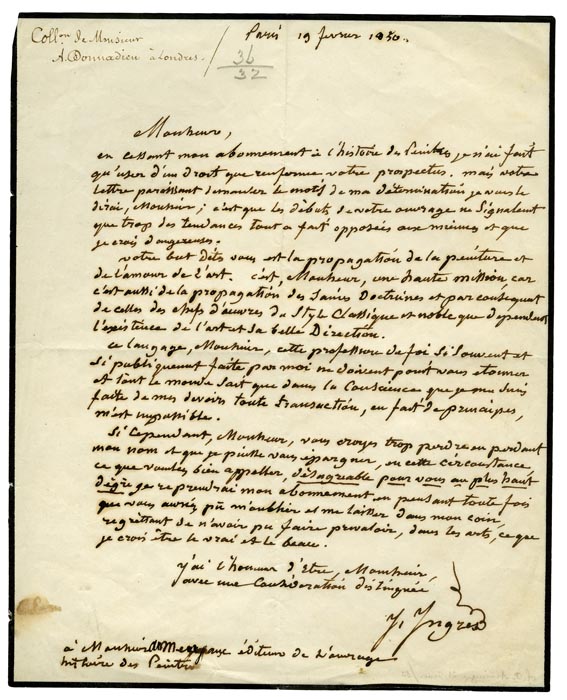 Coll.on de Monsieur
A. Donnadieu à Londres.
Paris 19 fevrier 1850.
36
32
Monsieur,
en cessant mon abonnement à l'histoire des Peintres je n'ai fait
qu'user d'un droit que renferme votre prospectus. mais votre
lettre paroissant demander le motif de ma détermination je vous le
dirai, Monsieur; c'est que les débuts de votre ouvrage ne signalent
que trop des tendances tout a fait opposées aux miennes et que
je crois dangereuses.
votre but dites vous est la propagation de la peinture et
de l'amour de l'art. c'est, Monsieur, une haute mission car
c'est aussi de la propagation des Saines Doctrines et par conséquent
de celles des chefs d'œuvres du Style Classique et noble que dépendent
l'existence de l'art et sa belle Direction.
ce langage, Monsieur, cette profession de foi si souvent et
si publiquement faite par moi ne doivent point vous étonner
et tout le monde sait que dans la Conscience que je me suis
faite de mes devoirs toute transaction, en fait de principes,
m'est impossible.
Si Cependant, Monsieur, vous croyez trop perdre en perdant
mon nom et que je puisse vous épargner, en cette circonstance,
ce que voulez bien appeller, désagréable pour vous au plus haut
dégré je reprendrai mon abonnement en pensant toute fois
que vous auriés pû m'oublier et me laisser dans mon coin,
regrettant de n'avoir pu faire prévaloir, dans les arts, ce que
je crois être le vrai et le beau.
J'ai l'honneur d'Etre, Monsieur,
avec une Considération distinguée
J. Ingres
à Monsieur editeur de l'ouvrage
histoire des Peintres